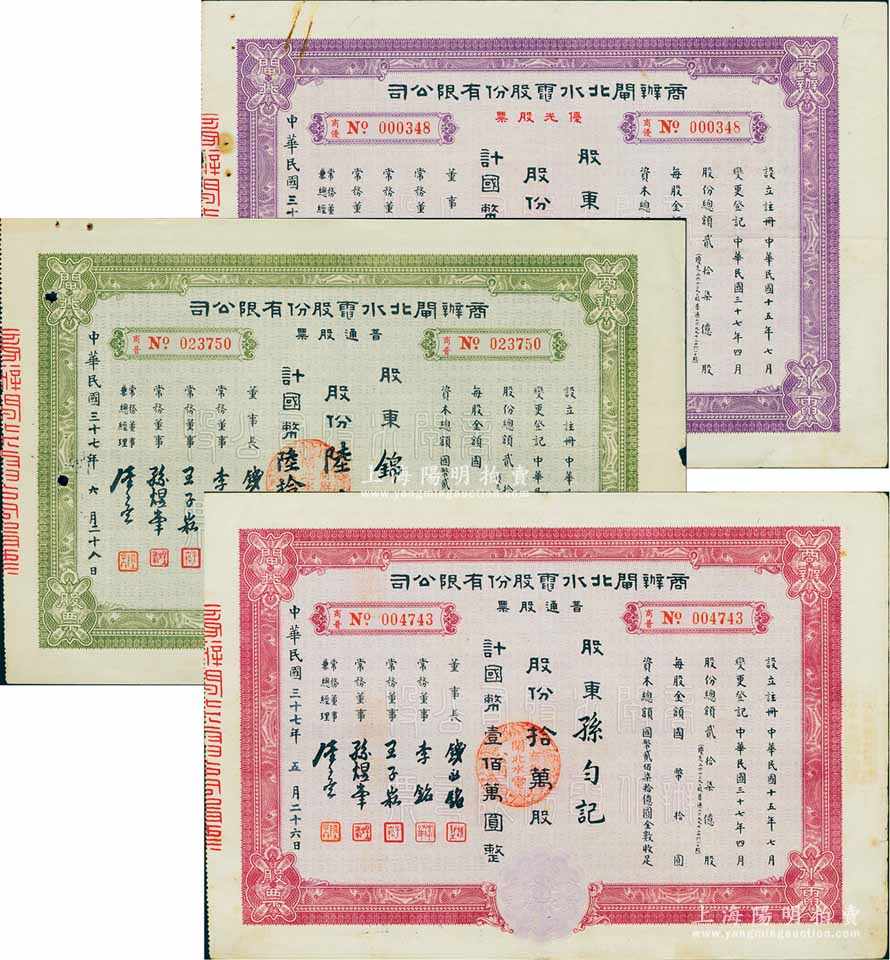 商辦閘北水電股份有限公司
優先股票
商優 No 000348
商優 No 000348
設立註冊 中華民國十五年七月
變更登記 中華民國三十七年四月
股份總額 貳拾柒億股
每股金
資本總
股東
股份
計國幣
董事
常務董
常務董
常務董
常務董
兼總經
中華民國三十
閘北
商辦
水電
商辦閘北水電股份有限公司
普通股票
商普 No 023750
商普 No 023750
設立註冊 中華
變更登記 中華民
股份總額 貳拾
每股金額 國
資本總額 國幣貳
股東 錦
股份 陸
計國幣 陸拾
董事長 錢
常務董事 李
常務董事 王子崧
常務董事 孫煜峯
常務董事
兼總經理
中華民國三十七年 六月二十八日
閘北
商辦
股票
商辦閘北水電股份有限公司
普通股票
商普 No 004743
商普 No 004743
設立註冊 中華民國十五年七月
變更登記 中華民國三十七年四月
股份總額 貳拾柒億股
每股金額 國幣拾圓
資本總額 國幣貳佰柒拾億圓全數收足
股東 孫勻記
股份 拾萬股
計國幣 壹佰萬圓整
閘北水電
董事長
常務董事 李銘
常務董事 王子崧
常務董事 孫煜峯
常務董事
兼總經理
中華民國三十七年 五月二十六日
閘北
商辦
股票
水電
上海陽明拍賣
www.yangmingauction.com
上海陽明拍賣
www.yangmingauction.com